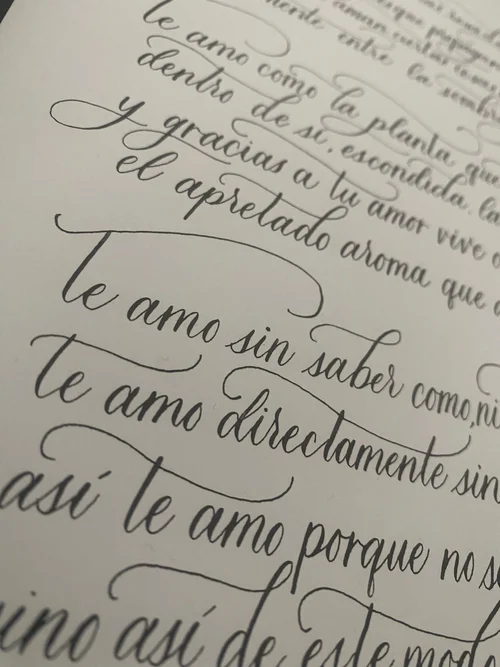 te amo como la planta que
dentro de sí, escondida, la
y gracias a tu amor vive
el apretado aroma que
te amo sin saber como, ni
te amo directamente sin
así te amo porque no s
ino así de este modo